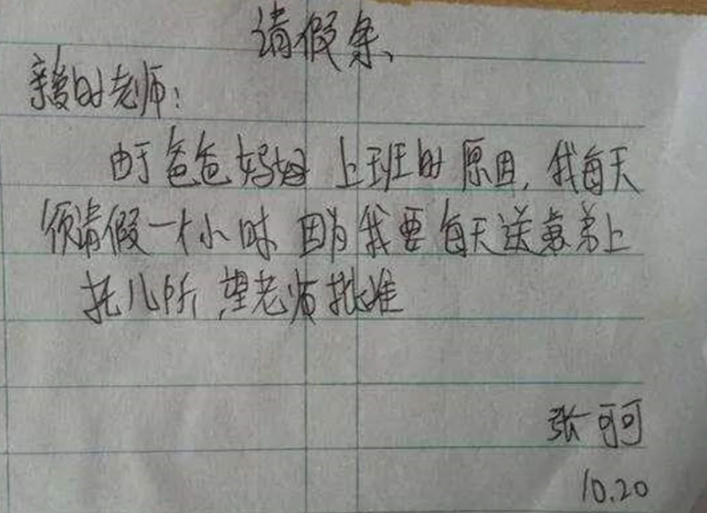 请假条
亲爱的老师:
由于爸爸妈妈上班的原因,我每天
须请假一个小时因为我要每天送弟弟上
托儿所,望老师批准
张可可
10.20